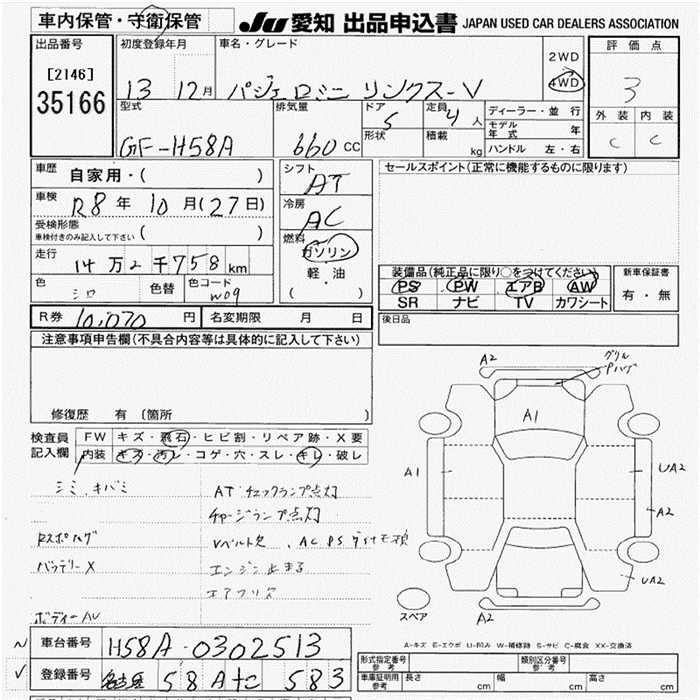 車内保管・守衛保管
JU 愛知 出品申込書 JAPAN USED CAR DEALERS ASSOCIATION
出品番号 初度登録年月 車名・グレード 評価点
[2146] 35166
13 12月 パジェロミニ リンクス-V 2WD 4WD
3
型式 排気量 ドア 定員 ディーラー・並行
GF-H58A 660 CC 5 4人
形状 積載 kg
モデル年式 年
ハンドル 左・右
外装 内装
C C
車歴 自家用・( )
シフト AT
セールスポイント(正常に機能するものに限ります)
車検 R8年10月(27日)
冷房 AC
受検形態
車検付きのみ記入して下さい ( )
燃料 ガソリン
軽・油
( )
走行 14万2千758km
装備品(純正品に限り○をつけてください) 新車保証書
PS PW エアB AW
SR ナビ TV カワシート
有・無
色 シロ 色替 色コード W09
R券 10,070円 名変期限 月 日
後日品
注意事項申告欄(不具合内容等は具体的に記入して下さい)
修復歴 有 (箇所 )
検査員記入欄
FW キズ・飛石・ヒビ割・リペア跡・X要
内装 キズ・汚レ・コゲ・穴・スレ・キレ・破レ
シミ、キバミ
ATチェックランプ点灯
チャージランプ点灯
Rスポハゲ
Vベルト欠、AC PS
バッテリーX
エンジン止まる
エアフリ欠
ボディーAU
A2
グリル
Pハゲ
A1
A1
UA2
A2
UA2
スペア
A2
A-キズ E-エクボ U-凹み W-補修跡 S-サビ C-腐食 XX-交換済
車台番号 H58A-0302513
登録番号 58 583
型式指定番号 参考 類別区分番号 参考
車庫証明用 参考 長さ cm 幅 cm 高さ cm